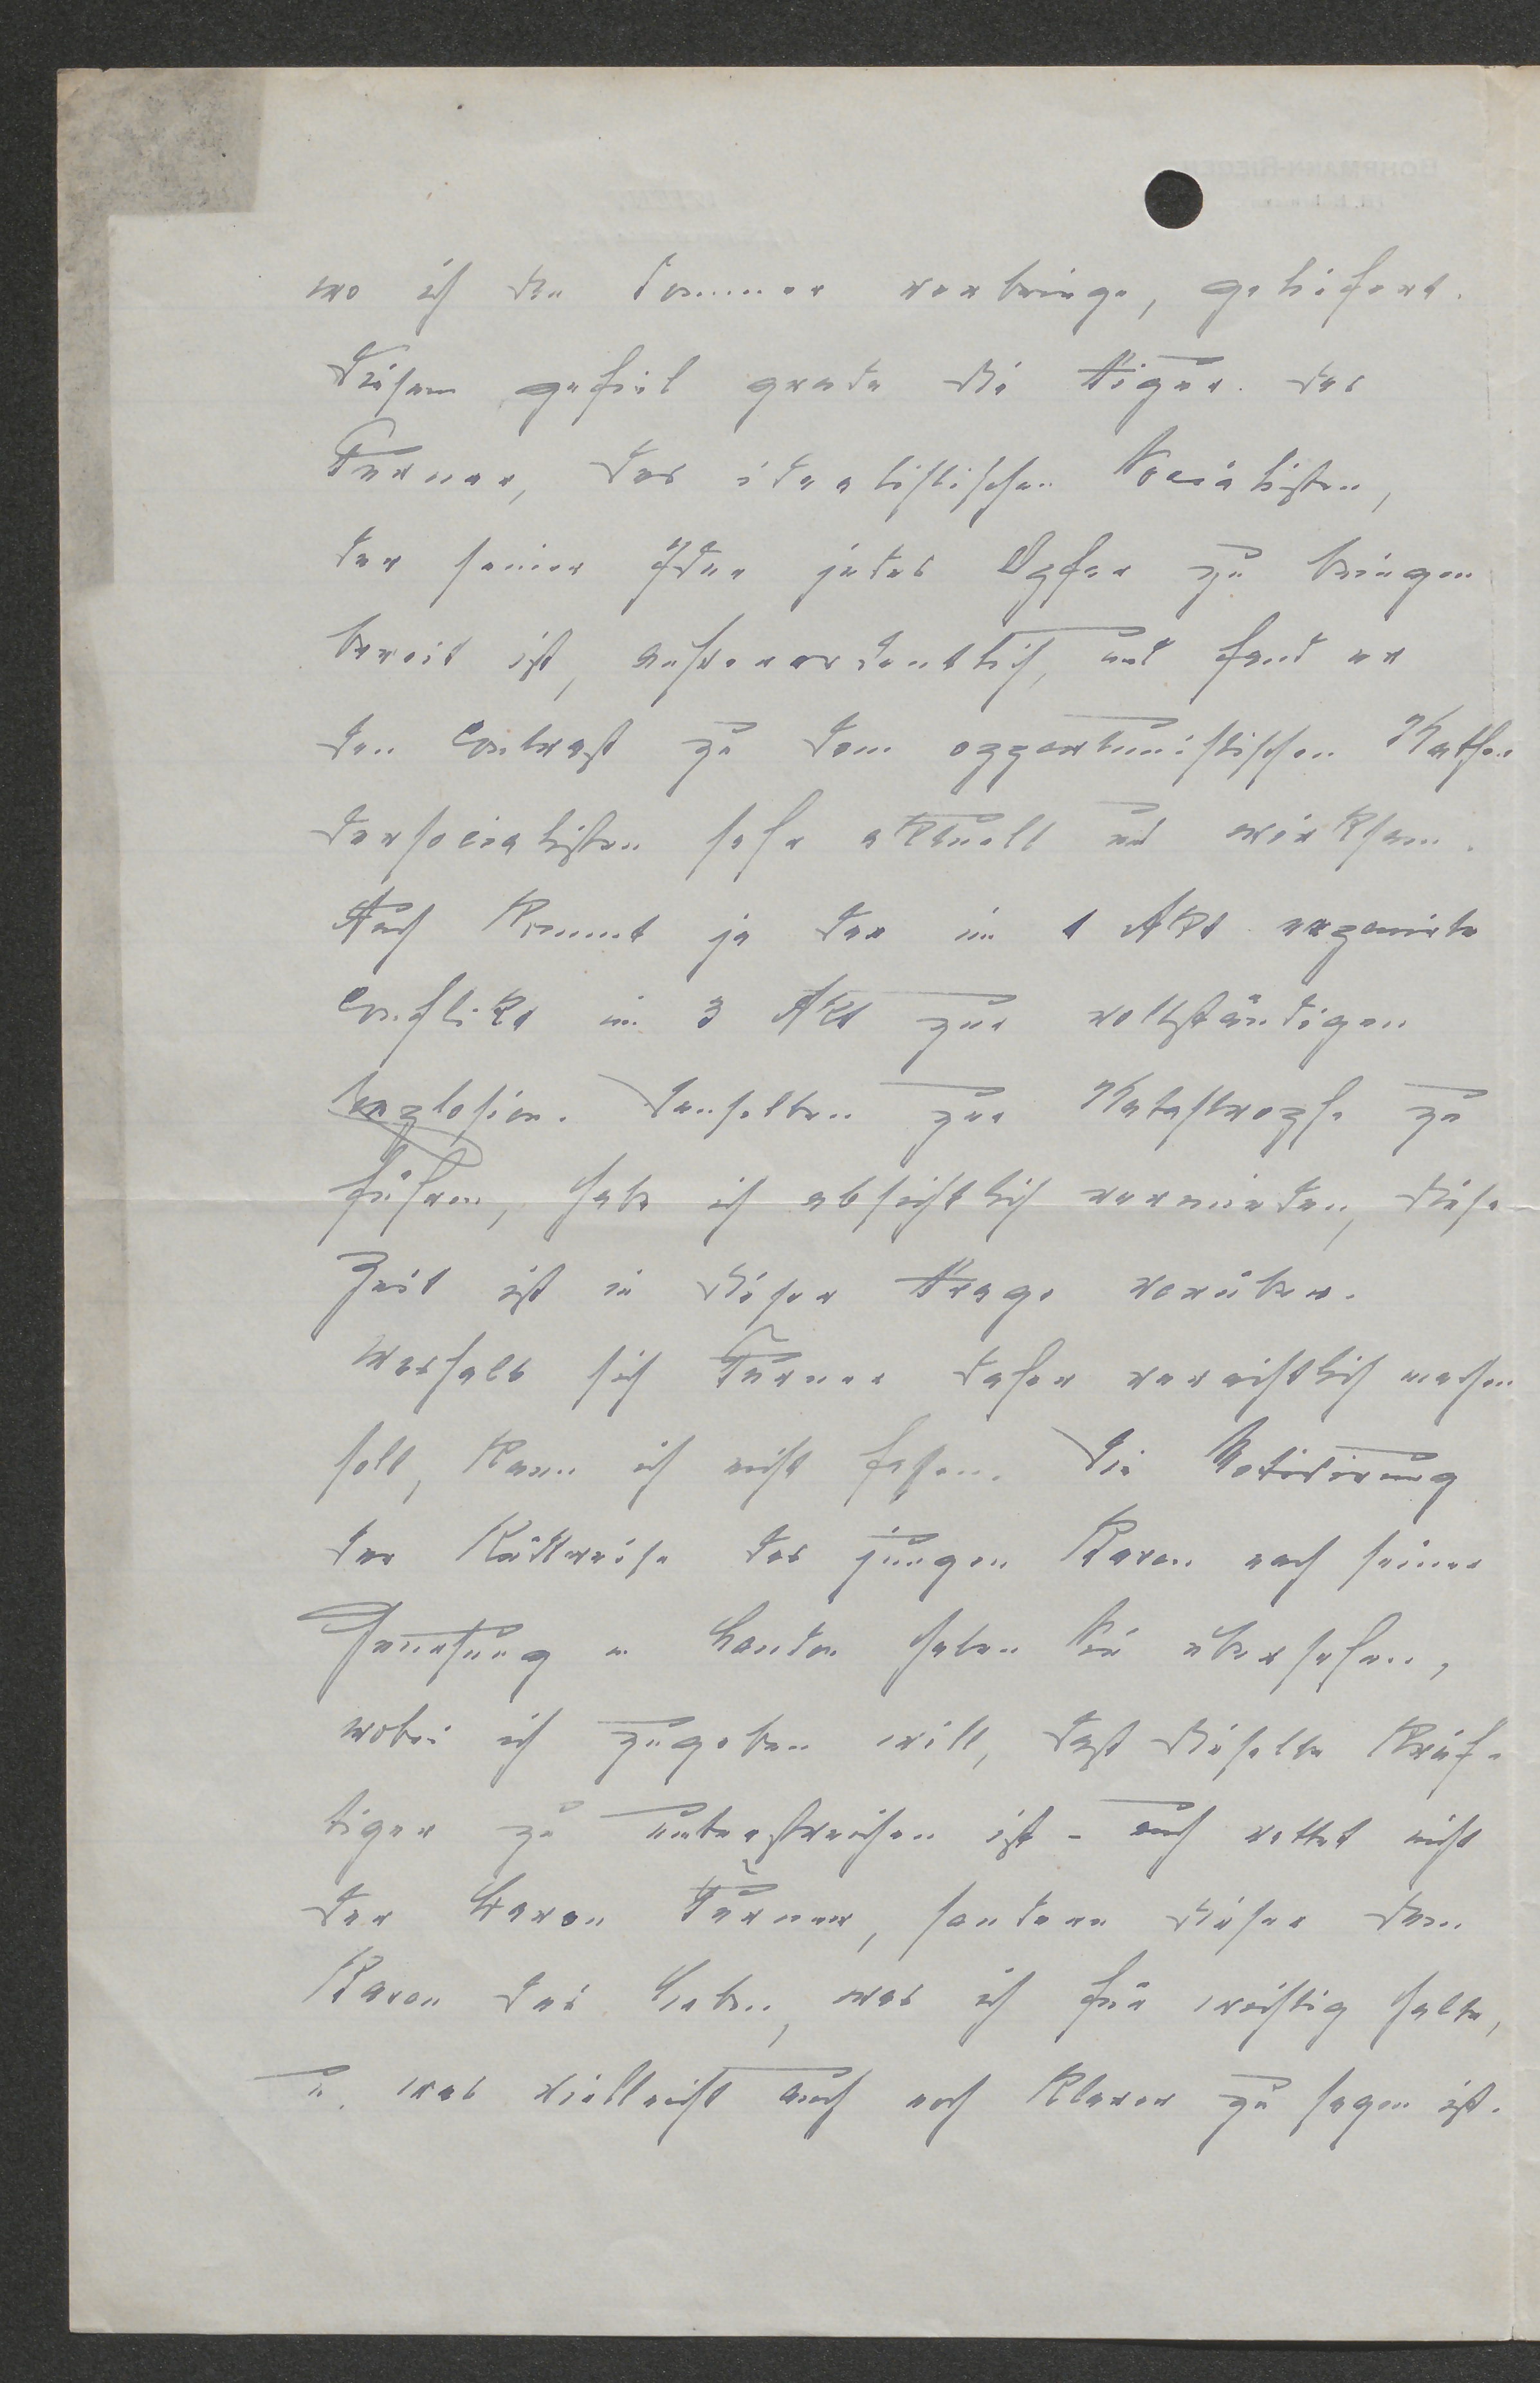 wo ich den Sommer verbringe, geliefert.
Diesem gefiel grade die Figur des
Turner, des idealistischen Socialisten,
der seiner Idee jedes Opfer zu bringen
bereit ist, außerordentlich, und fand er
den Contrast zu dem opportunistischen Kathe
dersocialisten sehr aktuell und wirksam.
Auch kommt ja der im 1 Akt exponirte
Conflikt im 3 Akt zur vollständigen
Explosion. Denselben zur Katastrophe zu
führen, habe ich absichtlich vermieden, diese
Zeit ist in dieser Frage vorüber.
Weshalb sich Turner daher verächtlich machen
soll, kann ich nicht sehen. Die Motivirung
der Rückreise des jungen Baron nach seiner
Genesung in London haben Sie übersehen,
wobei ich zugeben will, dass dieselbe kräf-
tiger zu unterstreichen ist - auch rettet nicht
der Baron Turner, sondern dieser dem
Baron das Leben, was ich für wichtig halte,
u. was vielleicht auch noch klarer zu sagen ist.